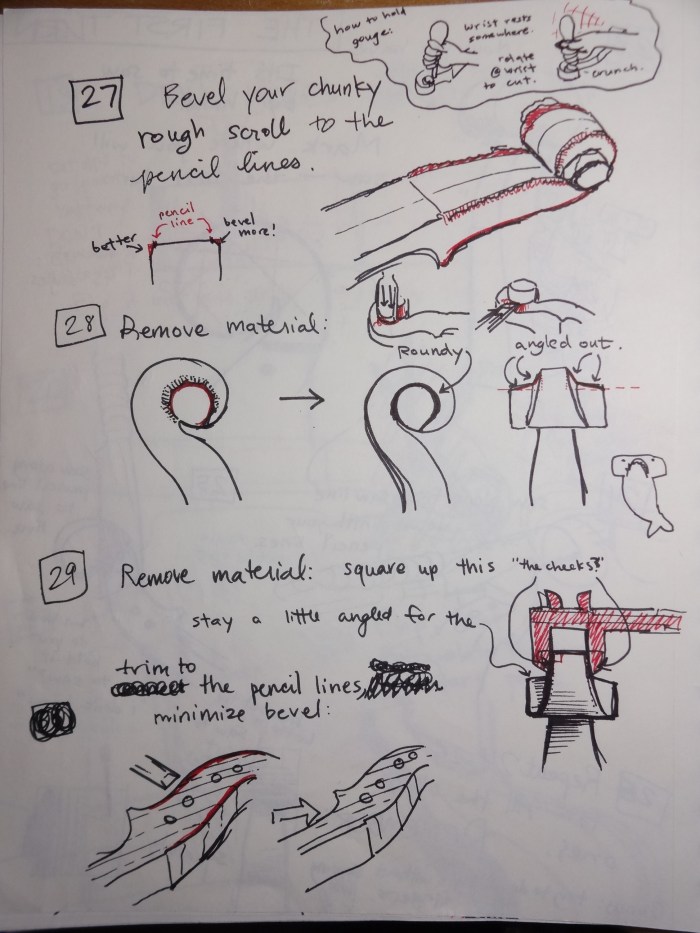 how to hold
gouge:
wrist rests
somewhere.
rotate
@ wrist
to cut.
crunch.
27
Bevel your chunky
rough scroll to the
pencil lines.
pencil
line
better
bevel
more!
28
Remove material:
Roundy
angled out.
29
Remove material: square up this "the cheeks?"
stay a little angled for the
trim to
the pencil lines,
minimize bevel: